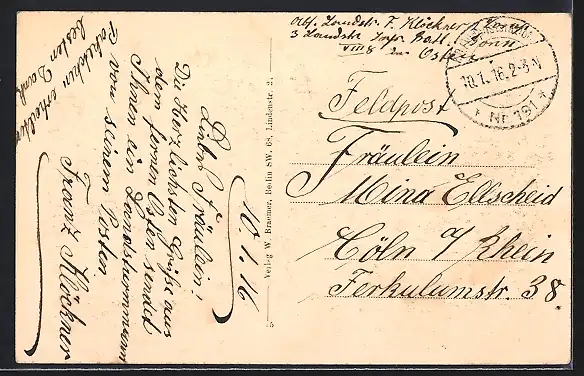 Abs. Landstr. F. Klöckner
3 Landstr. Inf. Batl. Bonn
VIII 8 im Osten
10.1.16.2-3 N
Nr. 191
Feldpost
Fräulein
Mina Ellscheid
Cöln a/Rhein
Ferkulumstr. 38
Verlag W. Braemer, Berlin SW. 68, Lindenstr. 2.
5
10.1.16
Liebes Fräulein!
Die herzlichsten Grüße aus
dem fernen Osten sendet
Ihnen ein Landsturmmann
von seinem Posten
Franz Klöckner
Paketchen erhalten
besten Dank